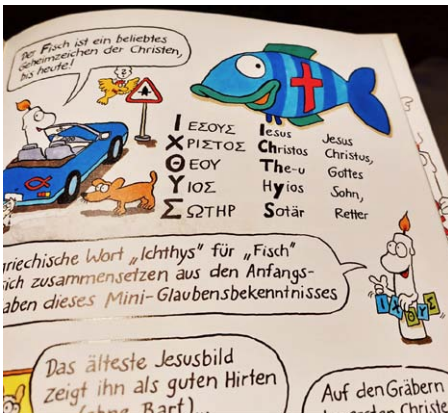 Der Fisch ist ein beliebtes
Geheimzeichen der Christen,
bis heute!
ΙΕΣΟΥΣ Iesus Jesus
ΧΡΙΣΤΟΣ Christos Christus,
ΘΕΟΥ The-u Gottes
ΥΙΟΣ Hyios Sohn,
ΣΩΤΗΡ Sotär Retter
griechische Wort „Ichthys" für „Fisch"
sich zusammensetzen aus den Anfangs-
aben dieses Mini-Glaubensbekenntnisses
ΙΧΘΥΣ
Das älteste Jesusbild
zeigt ihn als guten Hirten
(ohne Bart)
Auf den Gräbern
ersten Christe